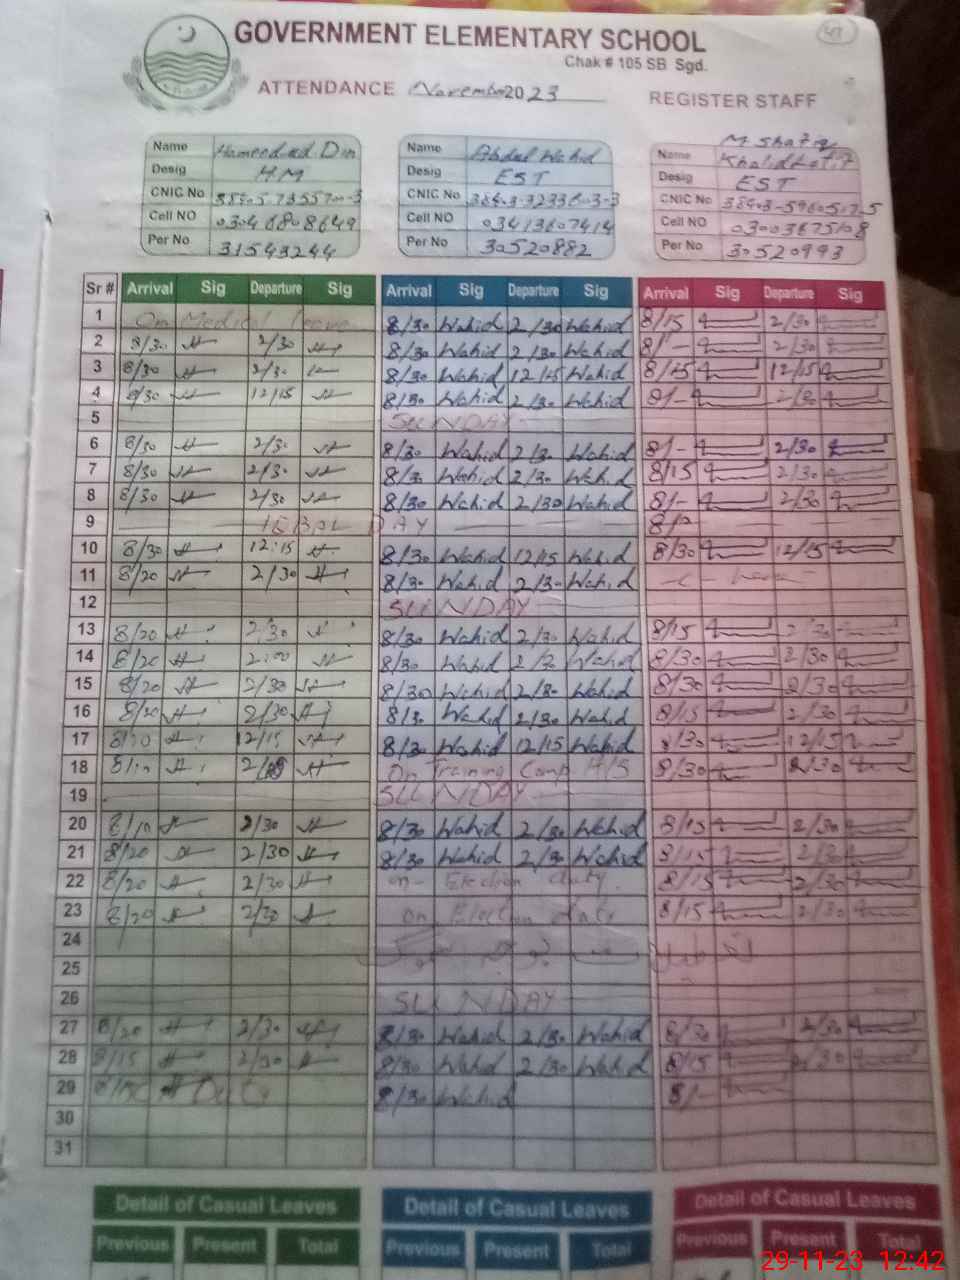 GOVERNMENT ELEMENTARY SCHOOL
Chak # 105 SB Sgd.
ATTENDANCE November 2023
REGISTER STAFF
Name Hameed ud Din
Desig H.M
CNIC No
Cell NO 0304 6808649
Per No 31543244
Name Abdul Wahid
Desig EST
CNIC No
Cell NO 03413607414
Per No 30520882
M. Shafiq
Name Khalid
Desig EST
CNIC No
Cell NO 03003675108
Per No 30520993
Sr # Arrival Sig Departure Sig Arrival Sig Departure Sig Arrival Sig Departure Sig
1 On Medical leave 8/30 Wahid 2/30 Wahid 8/15 2/30
2 8/30 2/30 8/30 Wahid 2/30 Wahid 8/- 2/30
3 8/30 2/30 8/30 Wahid 12/15 Wahid 8/15 12/15
4 8/30 12/15 8/30 Wahid 2/30 Wahid 8/- 2/30
5 SUNDAY
6 8/30 2/30 8/30 Wahid 2/30 Wahid 8/- 2/30
7 8/30 2/30 8/30 Wahid 2/30 Wahid 8/15 2/30
8 8/30 2/30 8/30 Wahid 2/30 Wahid 8/- 2/30
9 IQBAL DAY
10 8/30 12:15 8/30 Wahid 12/15 Wahid 8/30 12/15
11 8/20 2/30 8/30 Wahid 2/30 Wahid
12 SUNDAY
13 8/20 2:30 8/30 Wahid 2/30 Wahid 8/15 2/30
14 8/20 2:00 8/30 Wahid Wahid 8/30 2/30
15 8/20 2/30 8/30 Wahid 2/30 Wahid 8/30 2/30
16 8/20 2/30 8/30 Wahid 2/30 Wahid 8/15 2/30
17 8/20 12/15 8/30 Wahid 12/15 Wahid 8/30 12/15
18 On Training 8/30 2/30
19 SUNDAY
20 8/10 2/30 8/30 Wahid 2/30 Wahid 8/15 2/30
21 8/20 2/30 8/30 Wahid 2/30 Wahid 8/15 2/30
22 8/20 2/30 on Election duty 8/15 2/30
23 8/20 2/30 on Election duty 8/15 2/30
24
25
26 SUNDAY
27 8/20 2/30 8/30 Wahid 2/30 Wahid 8/30 2/30
28 8/15 2/30 8/30 Wahid 2/30 Wahid 8/15 2/30
29 Duty 8/30 Wahid 8/-
30
31
Detail of Casual Leaves Detail of Casual Leaves Detail of Casual Leaves
Previous Present Total Previous Present Total Previous Present Total
29-11-23 12:42